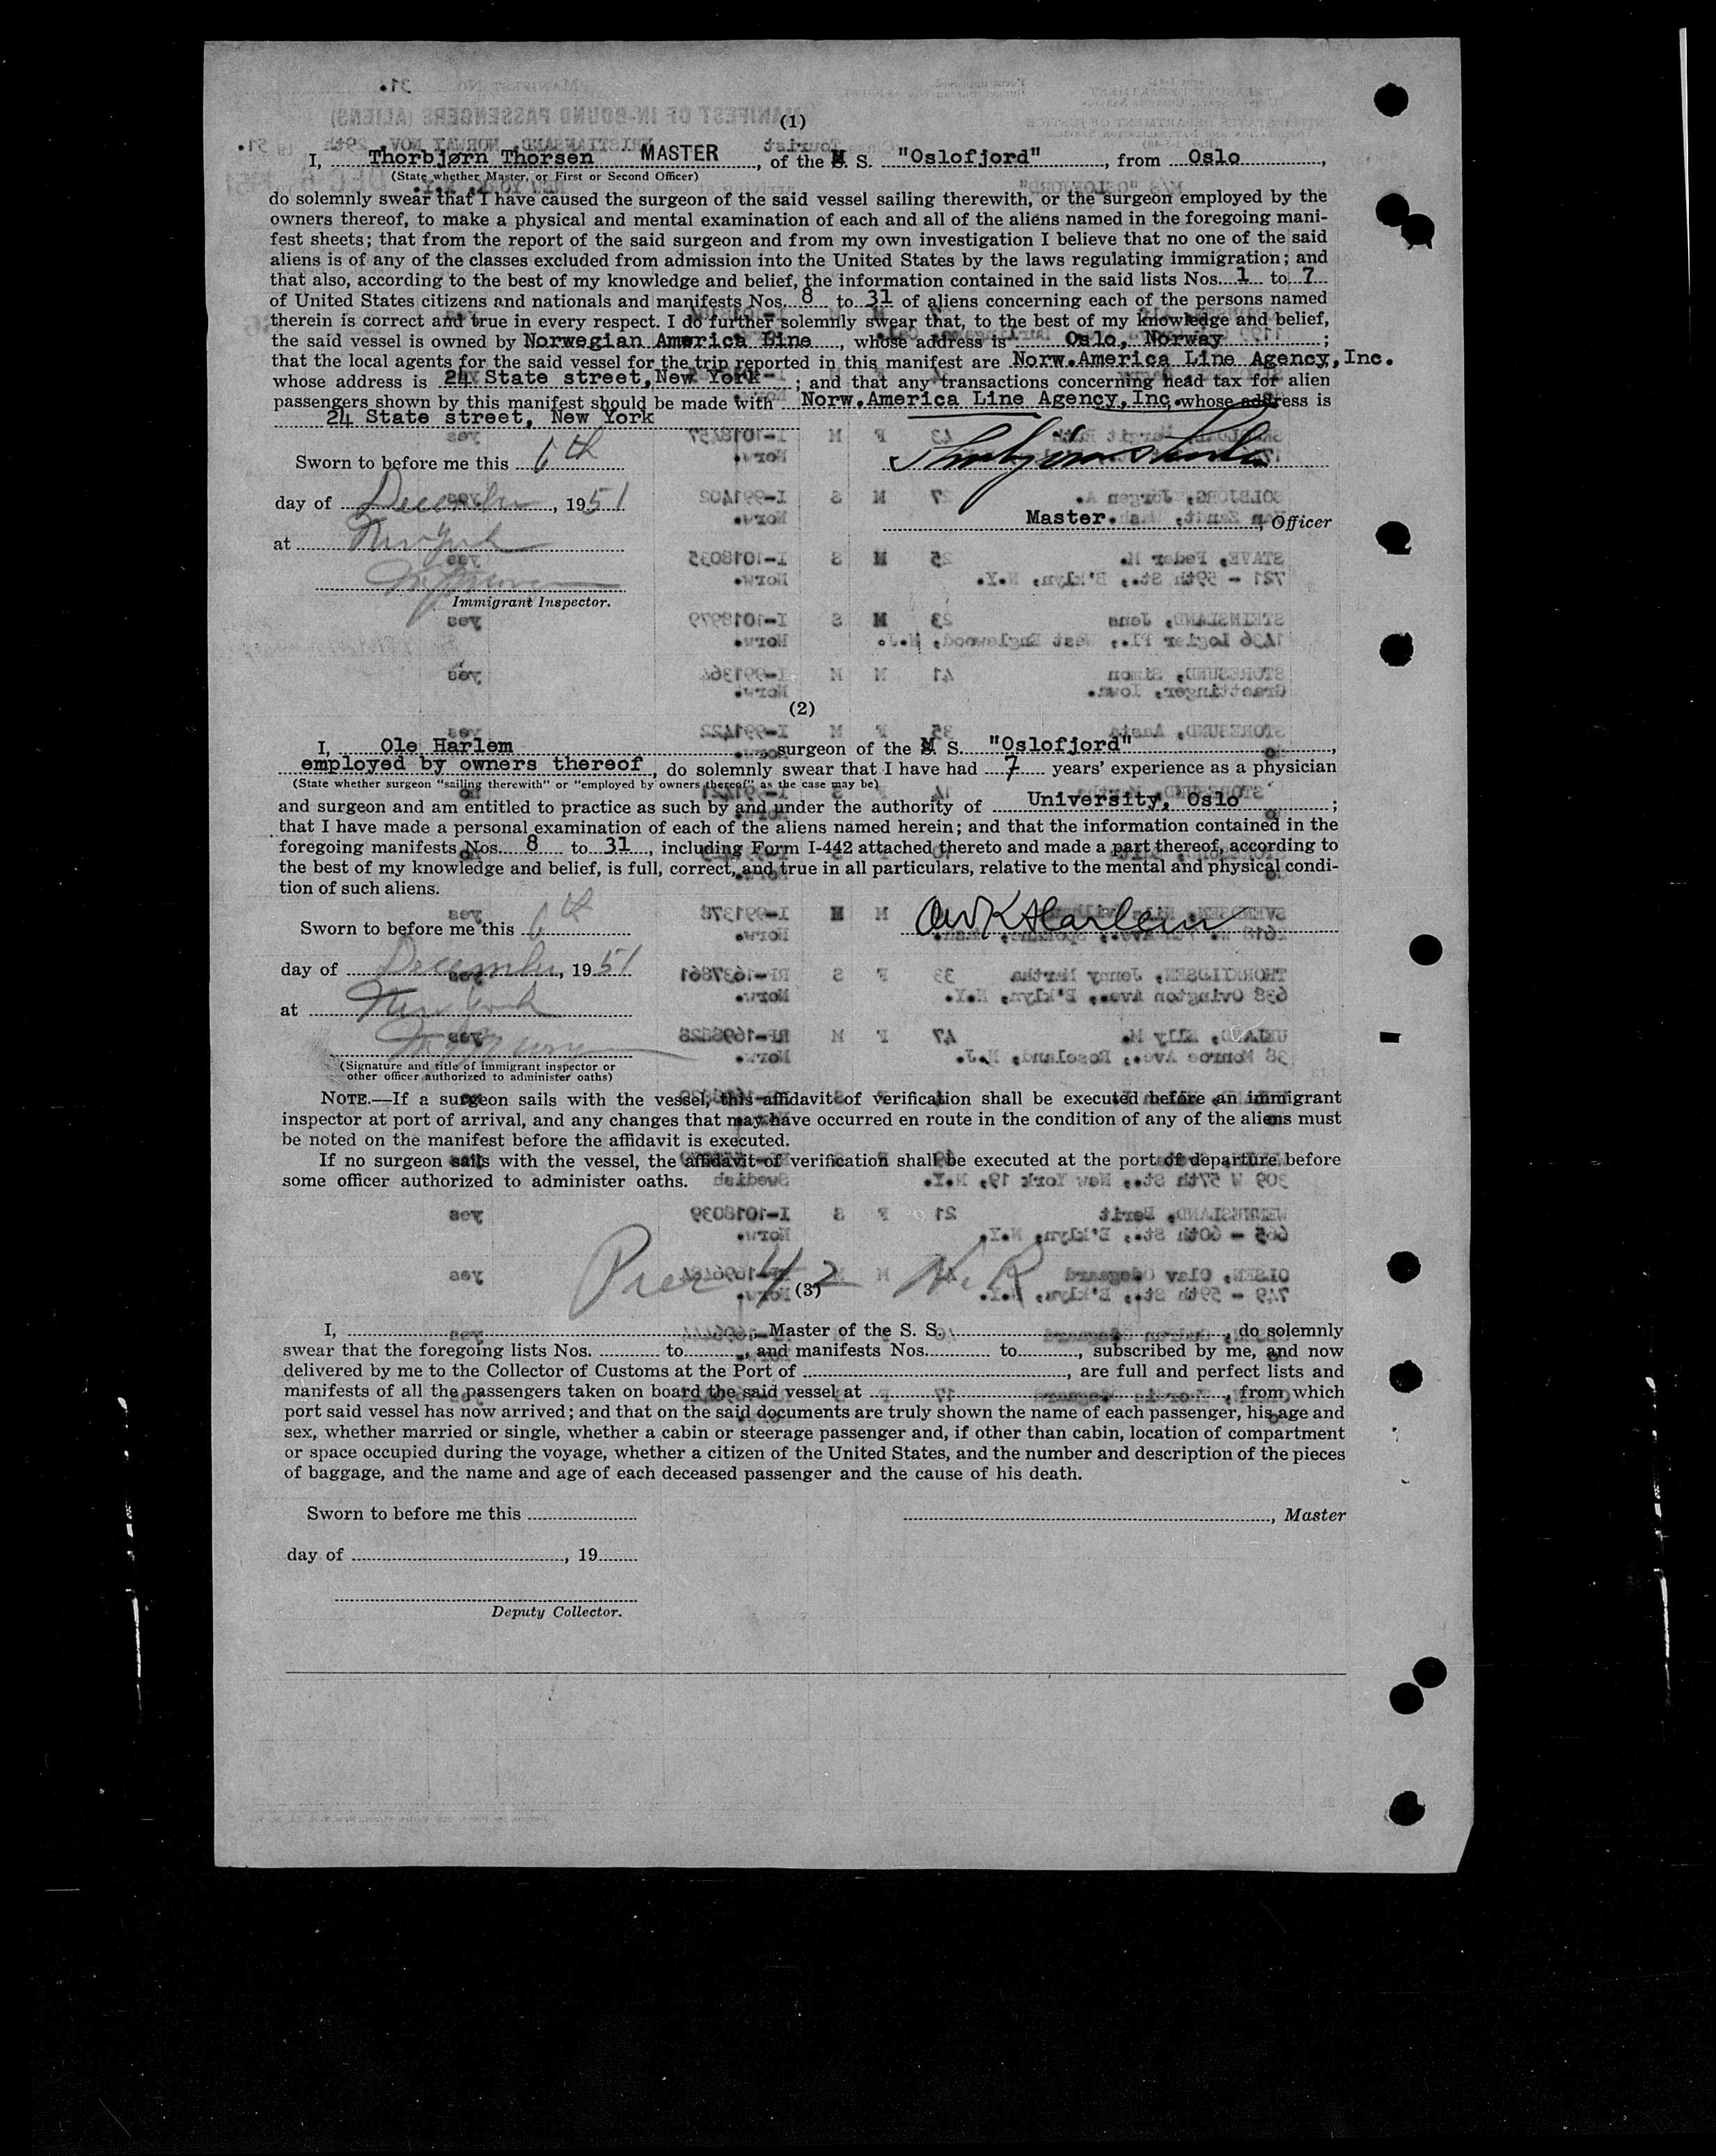 (1)
I, Thorbjørn Thorsen MASTER, of the M. S. "Oslofjord", from Oslo,
(State whether Master, or First or Second Officer)
do solemnly swear that I have caused the surgeon of the said vessel sailing therewith, or the surgeon employed by the
owners thereof, to make a physical and mental examination of each and all of the aliens named in the foregoing mani-
fest sheets; that from the report of the said surgeon and from my own investigation I believe that no one of the said
aliens is of any of the classes excluded from admission into the United States by the laws regulating immigration; and
that also, according to the best of my knowledge and belief, the information contained in the said lists Nos. 1 to 7
of United States citizens and nationals and manifests Nos. 8 to 31 of aliens concerning each of the persons named
therein is correct and true in every respect. I do further solemnly swear that, to the best of my knowledge and belief,
the said vessel is owned by Norwegian America Line, whose address is Oslo, Norway;
that the local agents for the said vessel for the trip reported in this manifest are Norw.America Line Agency,Inc.
whose address is 24 State street,New York; and that any transactions concerning head tax for alien
passengers shown by this manifest should be made with Norw.America Line Agency,Inc. whose address is
24 State street, New York
Sworn to before me this 6th
day of December, 1951
Master., Officer
at New York
Immigrant Inspector.
(2)
I, Ole Harlem surgeon of the M S. "Oslofjord",
employed by owners thereof, do solemnly swear that I have had 7 years' experience as a physician
(State whether surgeon "sailing therewith" or "employed by owners thereof" as the case may be)
and surgeon and am entitled to practice as such by and under the authority of University, Oslo;
that I have made a personal examination of each of the aliens named herein; and that the information contained in the
foregoing manifests Nos. 8 to 31, including Form I-442 attached thereto and made a part thereof, according to
the best of my knowledge and belief, is full, correct, and true in all particulars, relative to the mental and physical condi-
tion of such aliens.
Sworn to before me this 6th
OWKHarlem
day of December, 1951
at New York
(Signature and title of immigrant inspector or
other officer authorized to administer oaths)
NOTE.—If a surgeon sails with the vessel, this affidavit of verification shall be executed before an immigrant
inspector at port of arrival, and any changes that may have occurred en route in the condition of any of the aliens must
be noted on the manifest before the affidavit is executed.
If no surgeon sails with the vessel, the affidavit of verification shall be executed at the port of departure before
some officer authorized to administer oaths.
Pier 42 N.R
(3)
I, , Master of the S. S. , do solemnly
swear that the foregoing lists Nos. to , and manifests Nos. to , subscribed by me, and now
delivered by me to the Collector of Customs at the Port of , are full and perfect lists and
manifests of all the passengers taken on board the said vessel at , from which
port said vessel has now arrived; and that on the said documents are truly shown the name of each passenger, his age and
sex, whether married or single, whether a cabin or steerage passenger and, if other than cabin, location of compartment
or space occupied during the voyage, whether a citizen of the United States, and the number and description of the pieces
of baggage, and the name and age of each deceased passenger and the cause of his death.
Sworn to before me this
, Master
day of , 19
Deputy Collector.